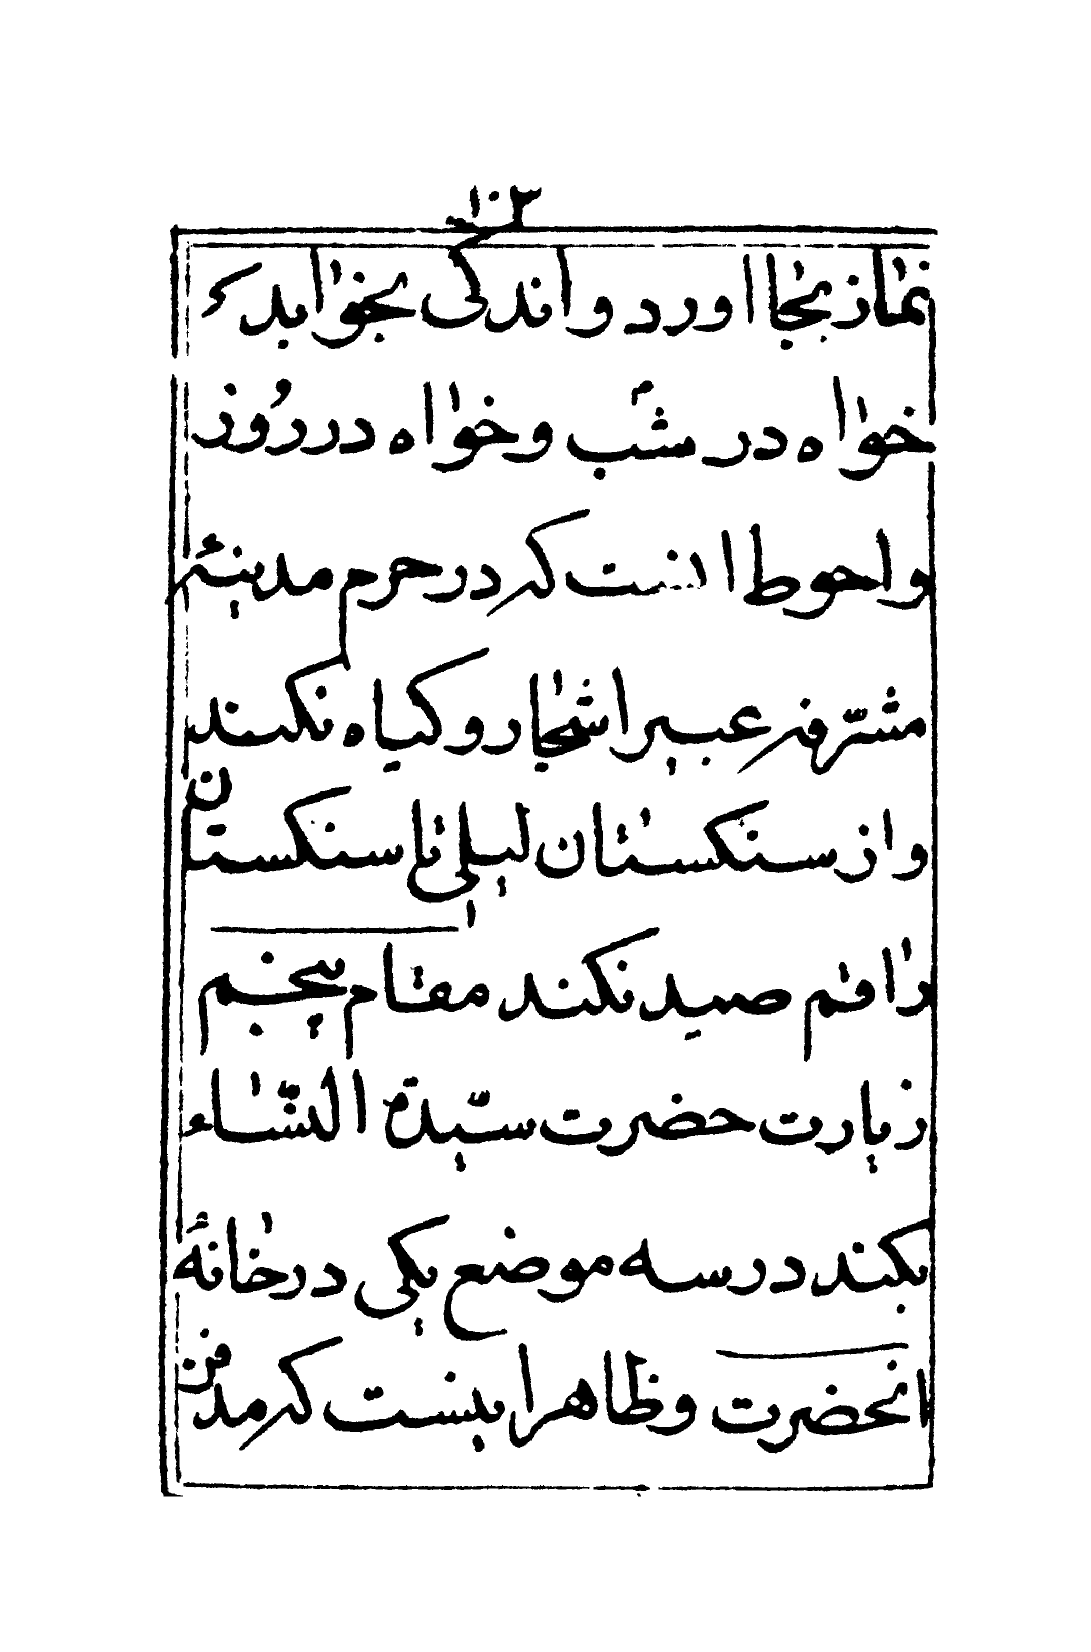 نماز بجا اورد و اندکی بخوابد
خواه در شب و خواه در روز
و احوط انست که در حرم مدینهٔ
مشرّفه عبیر اشجار و کیاه نکنند
و از سنکستان لیلی تا سنکستان
را قم صید نکند مقام پنجم
زیارت حضرت سیّدة النّساء
بکند در سه موضع یکی در خانهٔ
انحضرت و ظاهرا اینست که مدفن